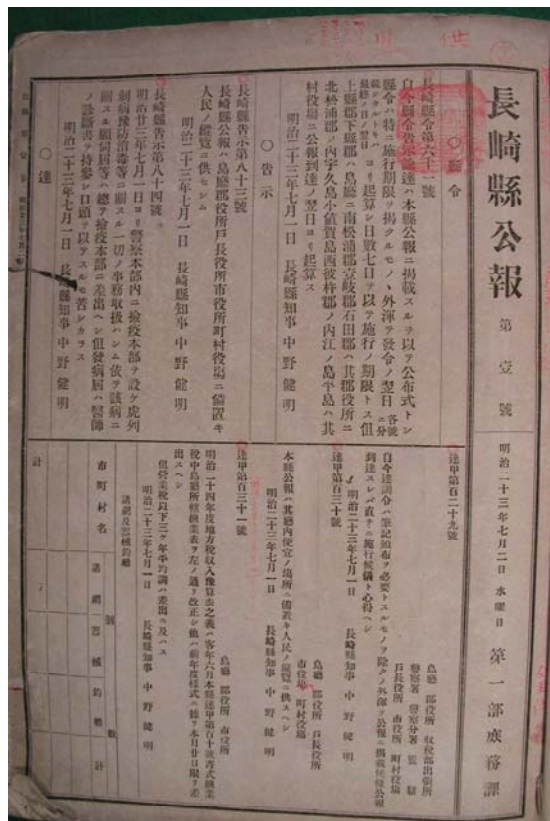 長崎縣公報
第壹號
明治二十三年七月二日 水曜日
第一部庶務課
○縣令
長崎縣令第六十二號
自今縣令告示諭達ハ本縣公報ニ掲載スルヲ以テ公布式トシ
縣令ハ特ニ施行期限ヲ掲クルモノヽ外渾テ發令ノ翌日
ヨリ起算シ日數七日ヲ以テ施行ノ期限トス但
上縣郡下縣郡ハ島廳ニ南松浦郡壹岐郡石田郡ハ其郡役所ニ
北松浦郡ノ内宇久島小値賀島西彼杵郡ノ内江ノ島平島ハ其
村役場ニ公報到達ノ翌日ヨリ起算ス
明治二十三年七月一日 長崎縣知事 中野健明
○告示
長崎縣告示第八十三號
長崎縣公報ハ島廳郡役所戸長役所市役所町村役場ニ備置キ
人民ノ縱覽ニ供セシム
明治二十三年七月一日 長崎縣知事 中野健明
長崎縣告示第八十四號
明治廿三年七月一日ヨリ警察本部内ニ撿疫本部ヲ設ケ虎列
刺病豫防消毒等ニ關スル一切ノ事務取扱ハシム依テ該病ニ
關スル願伺屆等ハ總テ撿疫本部ニ差出ヘシ但發病屆ハ醫師
ノ診斷書ヲ持參シ口頭ヲ以テスルモ苦シカラス
明治二十三年七月一日 長崎縣知事 中野健明
○達
達甲第百二十九號
島廳 郡役所 收税部出張所
警察署 警察分署 監獄
戸長役所 市役所 町村役場
自今達訓令ハ筆記頒布ヲ必要トスルモノヲ除クノ外部テ公報ニ掲載候條公報
到達スレハ直チニ施行候儀ト心得ヘシ
明治二十三年七月一日 長崎縣知事 中野健明
達甲第百三十號
島廳 郡役所 戸長役所
市役所 町村役場
本縣公報ハ其廳内便宜ノ場所ニ備置キ人民ノ縱覽ニ供スヘシ
明治二十三年七月一日 長崎縣知事 中野健明
達甲第百三十一號
島廳 郡役所 市役所
明治二十四年度地方税收入豫算表之義ハ客年六月本縣達甲第百十號書式漁業
税中島廳所轄漁業表ヲ左ノ通リ改正シ他ハ前年度樣式ニ據リ本月廿日限リ差
出スヘシ
但營業税以下三ケ年平均調ハ差出ニ及ハス
明治二十三年七月一日 長崎縣知事 中野健明
諸網及器械釣船
市町村名
號數
諸網
器械
釣船
計
計